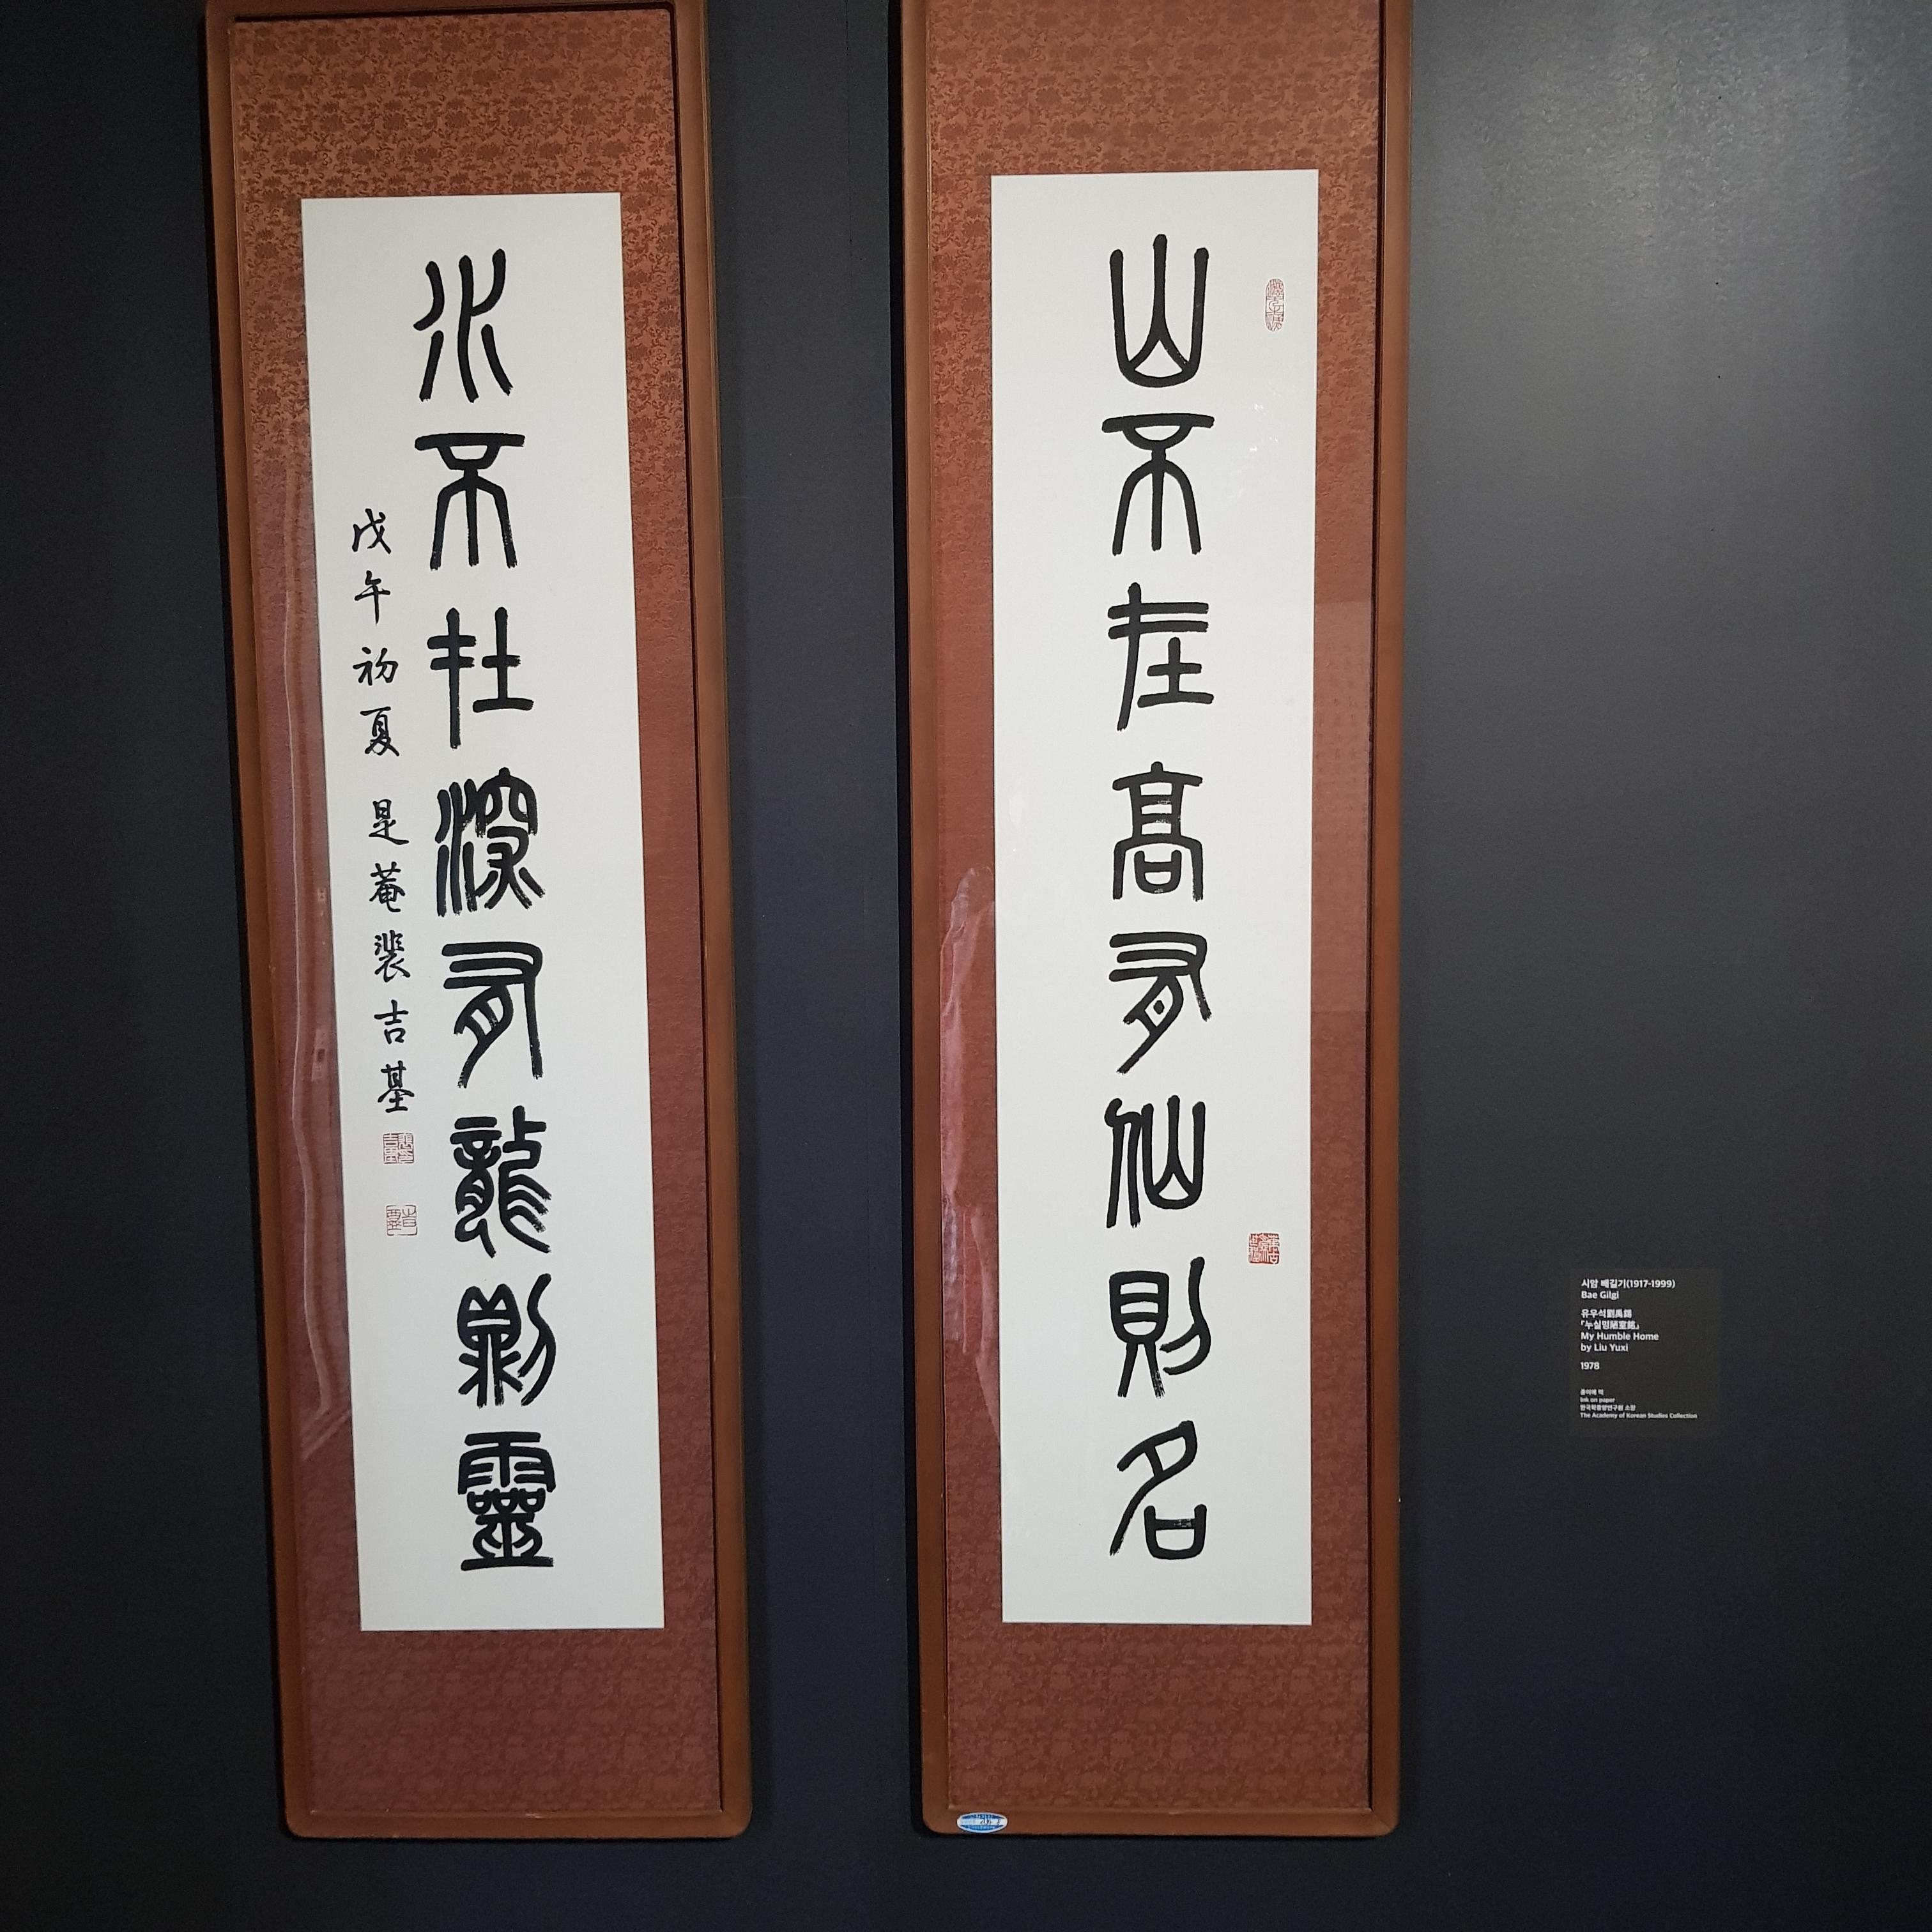 山不在高有仙則名
水不在深有龍則靈
戊午初夏 是菴裴吉基
시암 배길기(1917-1999)
Bae Gilgi
유우석劉禹錫
「누실명陋室銘」
My Humble Home
by Liu Yuxi
1978
종이에 먹
Ink on paper
한국학중앙연구원 소장
The Academy of Korean Studies Collection